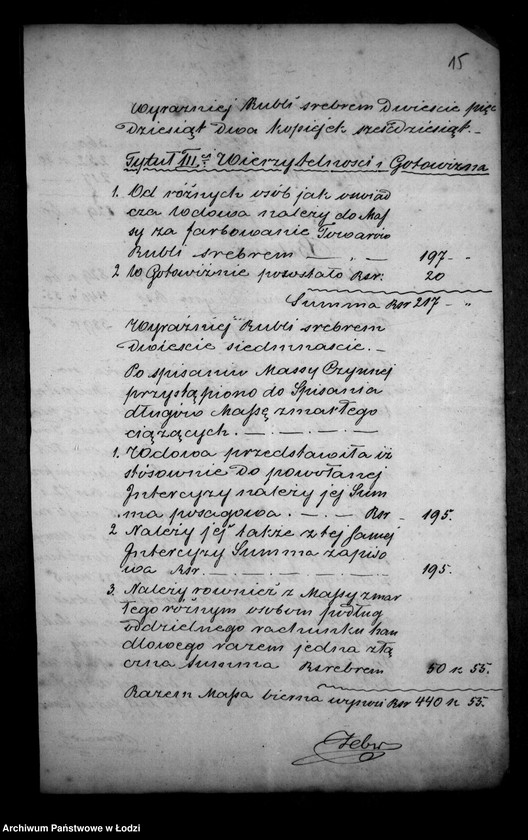 15
Wyraźniej Rubli srebrem Dwieście pięć
Dziesiąt dwa kopiejek sześćdziesiąt.
Tytuł III. Wierzytelności i Gotowizna
1. Od różnych osób jak oświad
cza Wdowa należy do Maſ
sy za farbowanie Towarów
Rubli srebrem — „ — 197 - „
2 W Gotowiźnie pozostało Rsr: 20
Summa Rsr 217 - „
Wyraźniej Rubli srebrem
Dwieście siedmnaście. —
Po spisaniu Massy Czynnej
przystąpiono do Spisania
długów Maſsę zmarłego
ciążących. — . — . — . —
1. Wdowa przedstawiła iż
stósownie do powołanej
Intercyzy należy jej Sum
ma posagowa . — . — Rsr - 195.
2 Należy jej także z tej samej
Intercyzy Summa zapiso
wa Rsr. — . — . — 195.
3. Należy rownież z Maſsy zmar
łego różnym osobom podług
oddzielnego rachunku han
dlowego razem jedna złą
czna summa Rsrebrem 50 k 55.
Razem Maſsa bierna wynosi Rsr 440 k 55.
Archiwum Państwowe w Łodzi